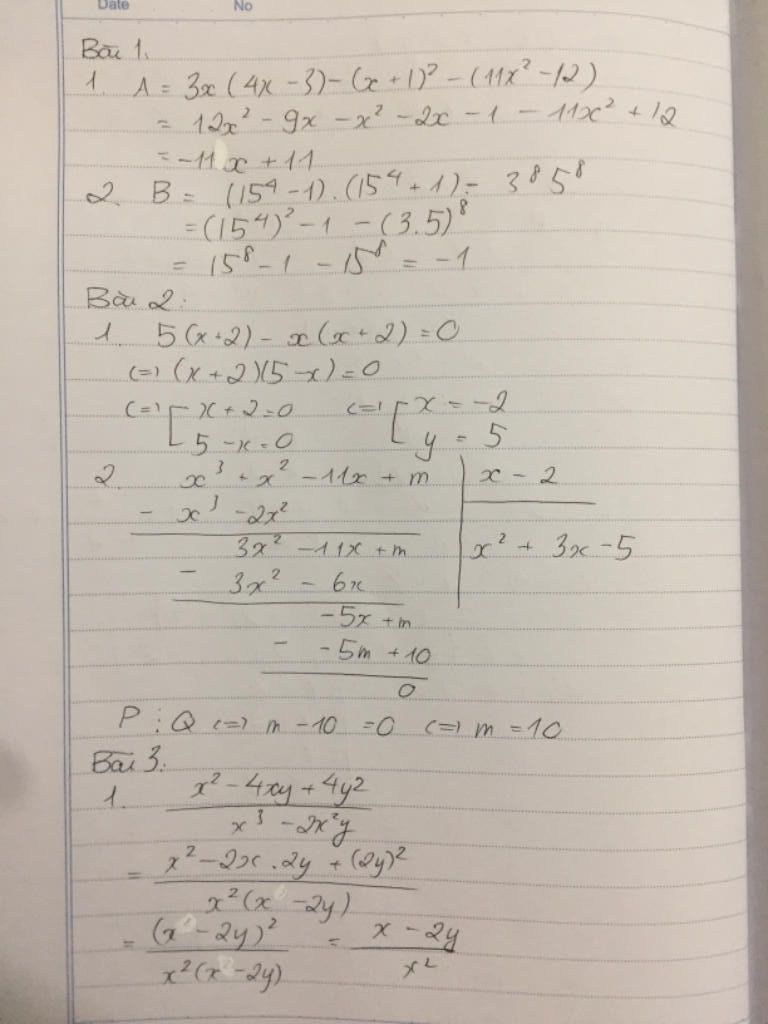 Date No
Bài 1.
1. A = 3x(4x - 3) - (x + 1)² - (11x² - 12)
= 12x² - 9x - x² - 2x - 1 - 11x² + 12
= -11x + 11
2. B = (15⁴ - 1).(15⁴ + 1) - 3⁸5⁸
= (15⁴)² - 1 - (3.5)⁸
= 15⁸ - 1 - 15⁸ = -1
Bài 2:
1. 5(x+2) - x(x+2) = 0
<=> (x + 2)(5 - x) = 0
<=> [ x + 2 = 0 <=> [ x = -2
5 - x = 0 y = 5
2. x³ + x² - 11x + m | x - 2
- x³ - 2x²
3x² - 11x + m | x² + 3x - 5
- 3x² - 6x
-5x + m
- -5m + 10
0
P ⋮ Q <=> m - 10 = 0 <=> m = 10
Bài 3:
1. x² - 4xy + 4y²
x³ - 2x²y
= x² - 2x.2y + (2y)²
x²(x - 2y)
= (x - 2y)² = x - 2y
x²(x - 2y) x²